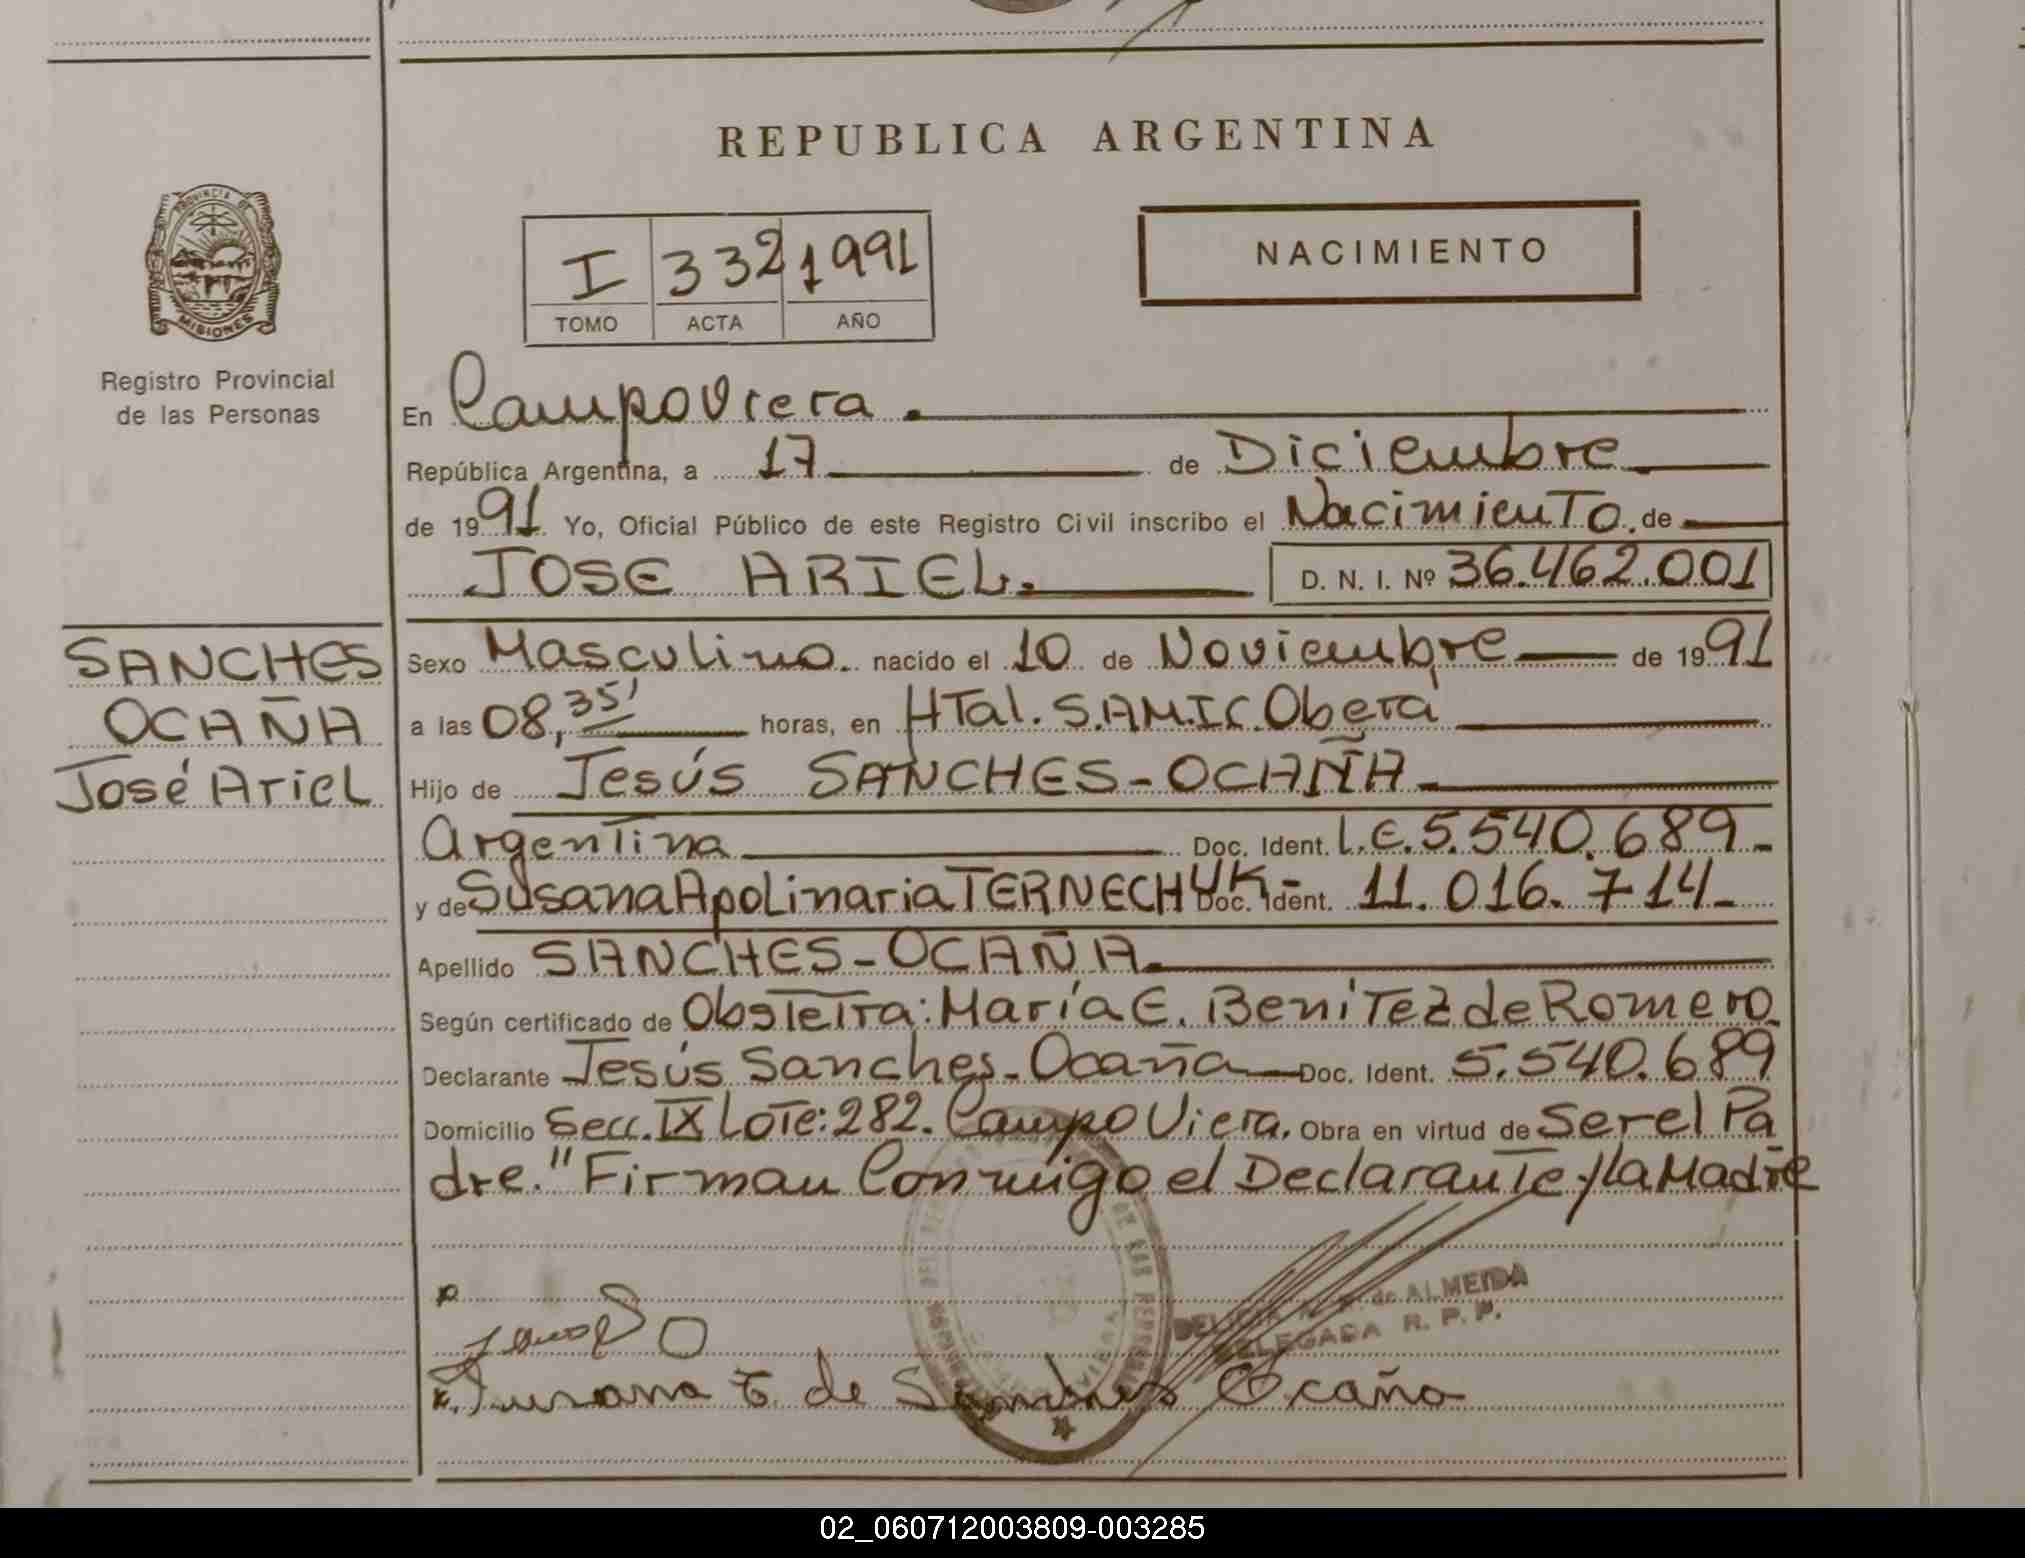 REPUBLICA ARGENTINA
PROVINCIA DE
MISIONES
Registro Provincial
de las Personas
I 332 1991
TOMO ACTA AÑO
NACIMIENTO
En Campo Viera.
República Argentina, a 17 de Diciembre
de 1991. Yo, Oficial Público de este Registro Civil inscribo el Nacimiento de
JOSE ARIEL. D. N. I. Nº 36.462.001
SANCHES
OCAÑA
José Ariel
Sexo Masculino. nacido el 10 de Noviembre de 1991
a las 08,35' horas, en HTal. S.AM.IC. Oberá
Hijo de Jesús SANCHES-OCAÑA
Argentina Doc. Ident. L.E. 5.540.689-
y de Susana Apolinaria TERNECHUK- Doc. Ident. 11.016.714-
Apellido SANCHES-OCAÑA.
Según certificado de Obstetra: María E. Benitez de Romero
Declarante Jesús Sanches-Ocaña Doc. Ident. 5.540.689
Domicilio Secc. IX Lote: 282. Campo Viera. Obra en virtud de Ser el Pa
dre." Firman Conmigo el Declarante y la Madre
de ALMEIDA
DELEGADA R. P. P.
Susana T. de Sanches Ocaña
02_060712003809-003285